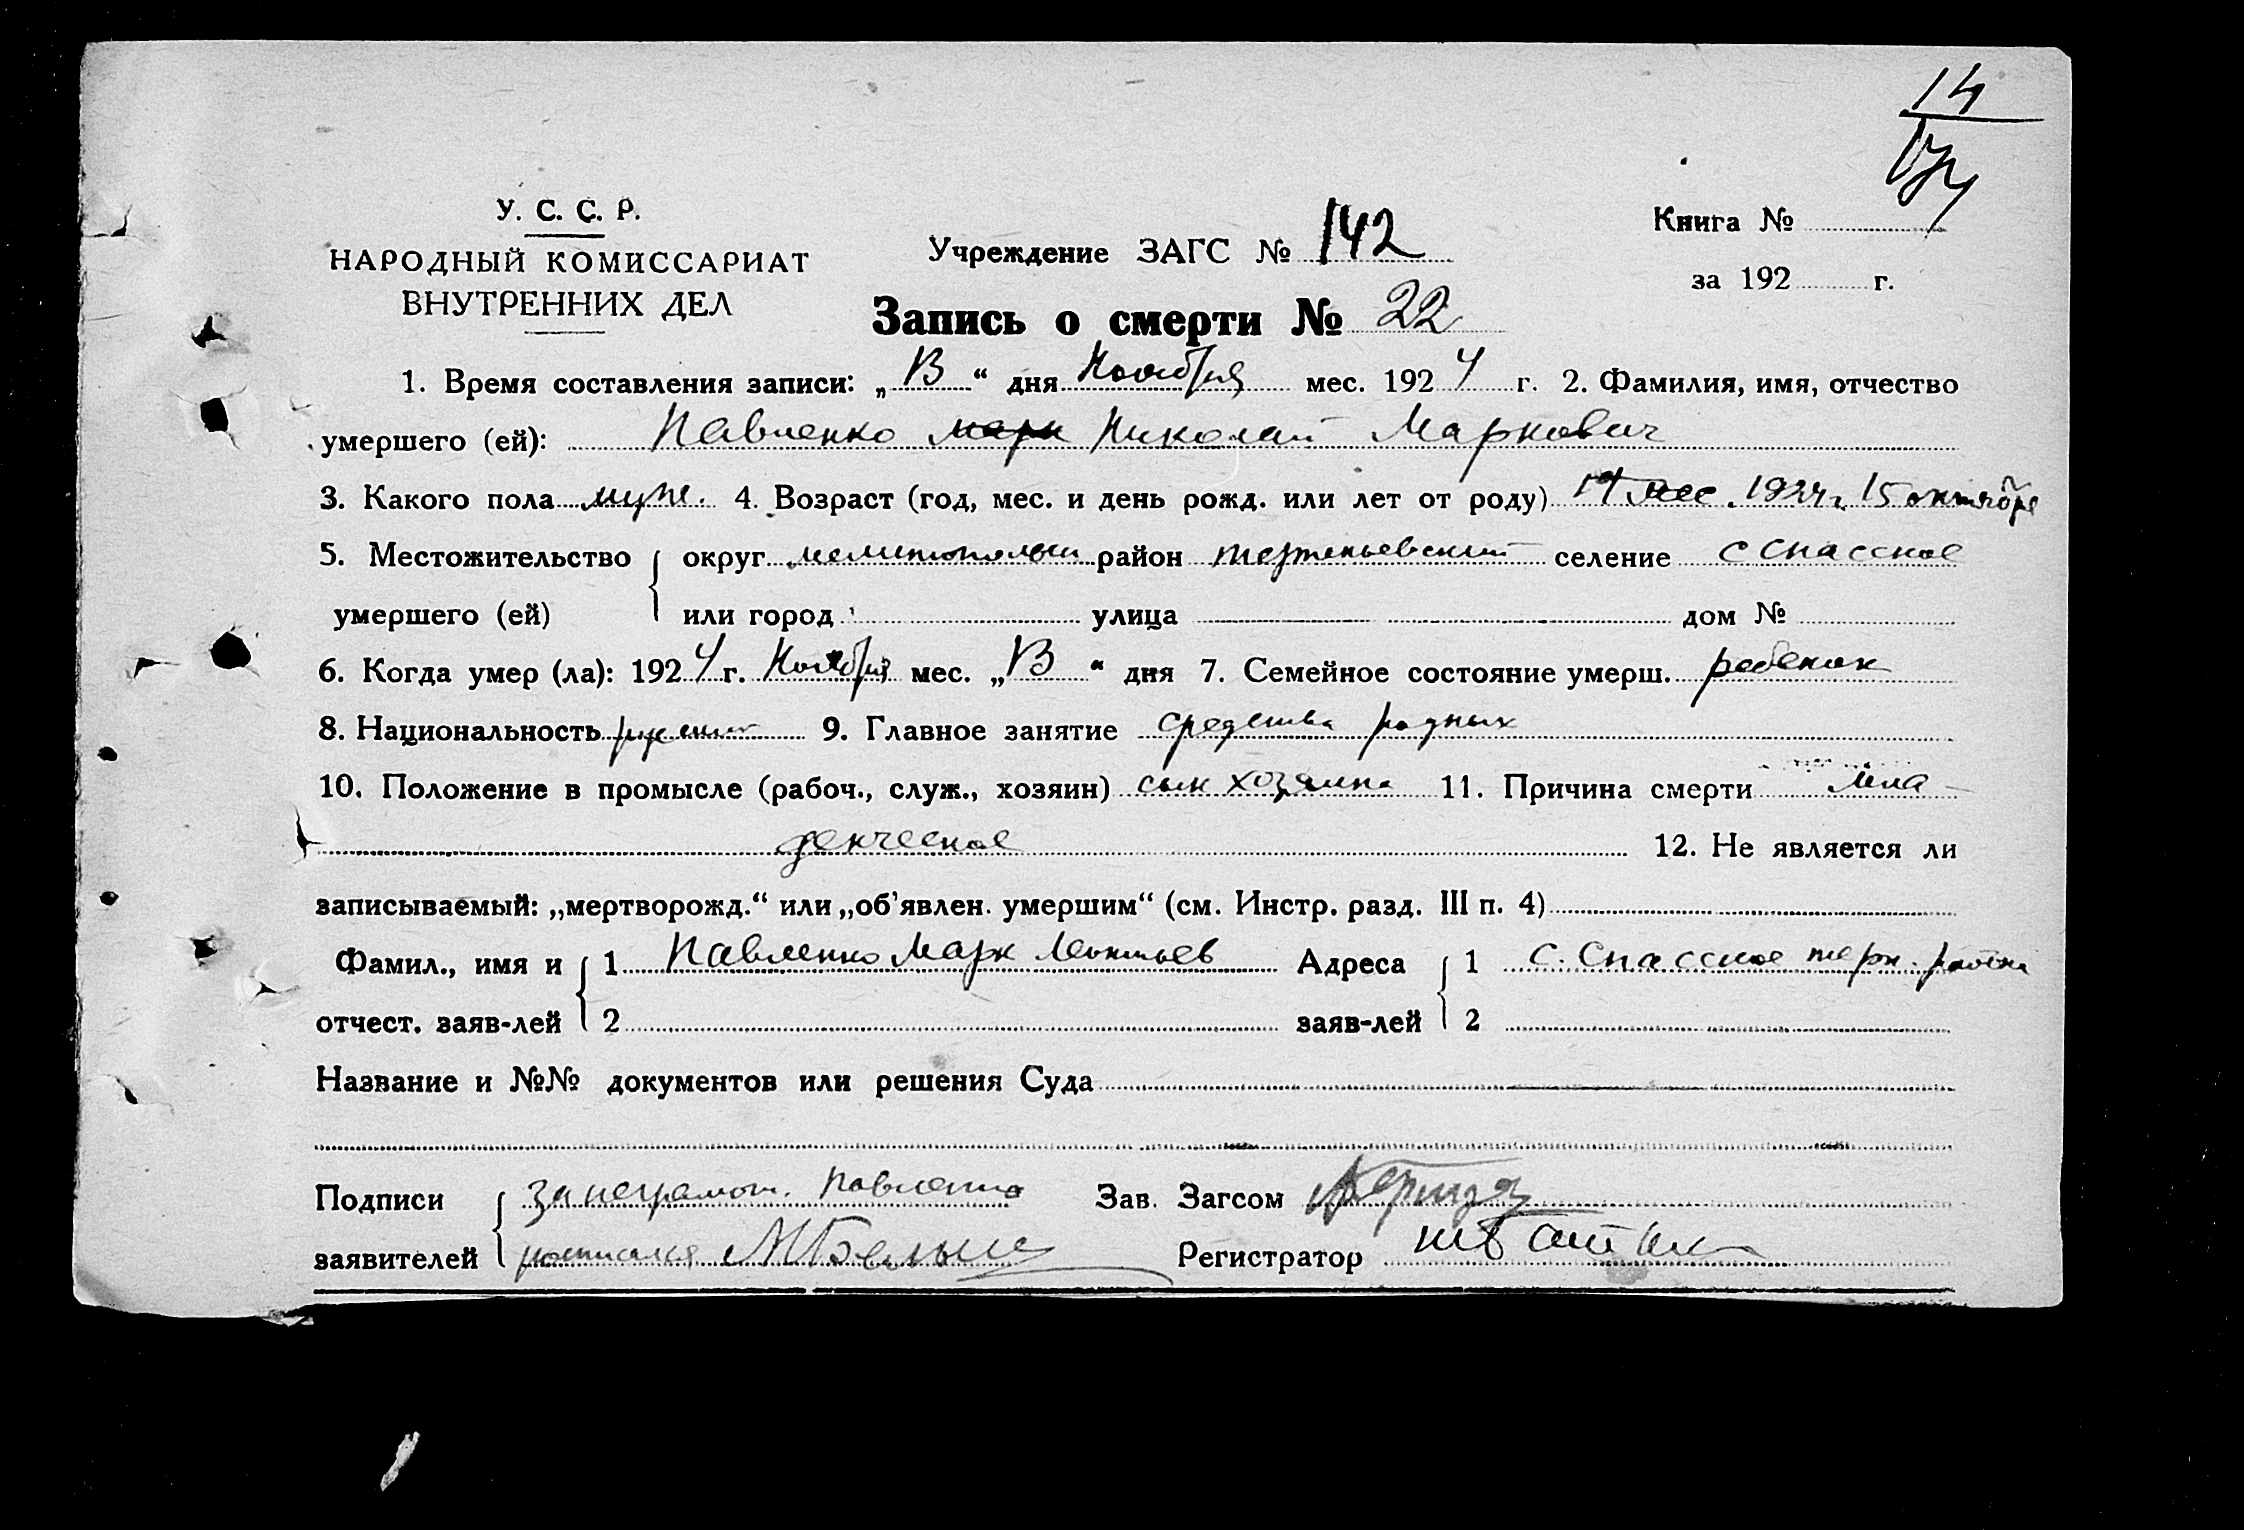 14
У. С. С. Р.
НАРОДНЫЙ КОМИССАРИАТ
ВНУТРЕННИХ ДЕЛ
Учреждение ЗАГС № 142
Книга №
за 192 г.
Запись о смерти № 22
1. Время составления записи: „13“ дня Ноября мес. 1924 г. 2. Фамилия, имя, отчество
умершего (ей): Павленко Марк Николай Маркович
3. Какого пола муж. 4. Возраст (год, мес. и день рожд. или лет от роду) 1924 г. 15 октября
5. Местожительство умершего (ей) округ мелитопольск район терпеньевский селение с Спасское
или город улица дом №
6. Когда умер (ла): 1924 г. Ноября мес. „13“ дня 7. Семейное состояние умерш. ребенок
8. Национальность русский 9. Главное занятие средства родных
10. Положение в промысле (рабоч., служ., хозяин) сын хозяина 11. Причина смерти мла-
денческое 12. Не является ли
записываемый: „мертворожд.“ или „об’явлен. умершим“ (см. Инстр. разд. III п. 4)
Фамил., имя и отчест. заяв-лей 1 Павленко Марк Леонтьев Адреса заяв-лей 1 с. Спасское терп. района
2 2
Название и №№ документов или решения Суда
Подписи заявителей за неграмот. Павленко Зав. Загсом
росписался Регистратор